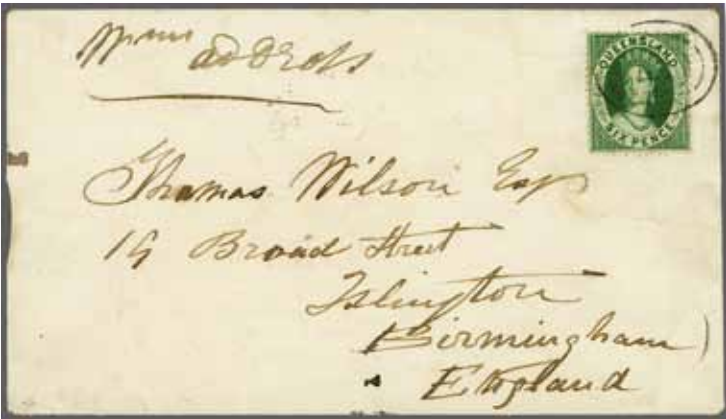 address
QUEENSLAND
SIX PENCE
Thomas Wilson Esqr
19 Broad Street
Islington
Birmingham
England